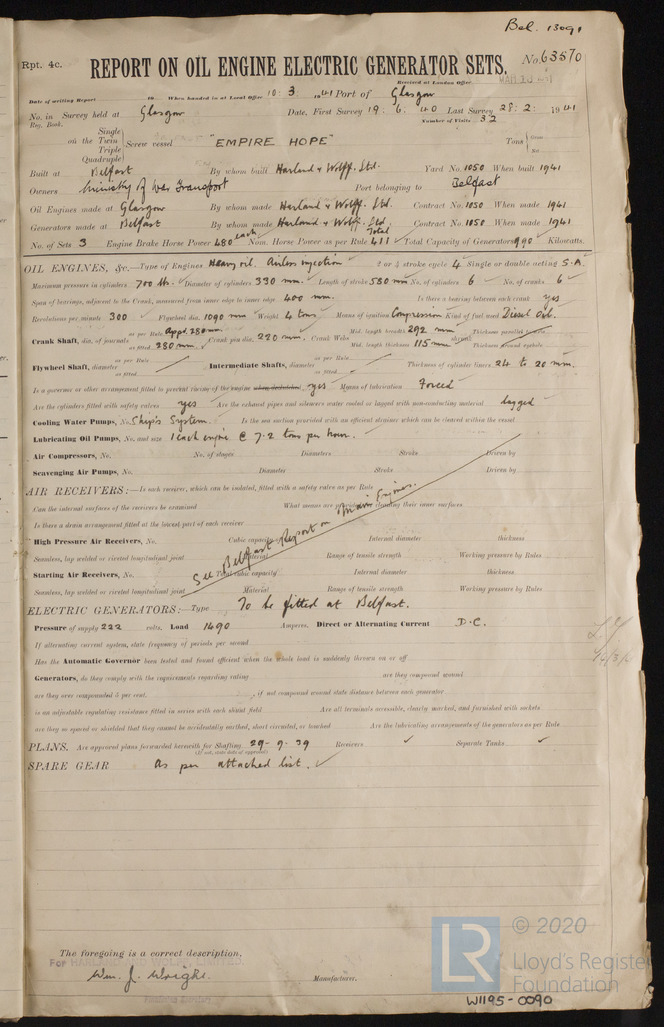 Bel. 13091
Rpt. 4c.
REPORT ON OIL ENGINE ELECTRIC GENERATOR SETS.
No. 63570
Received at London Office
Date of writing Report 19 When handed in at Local Office 10 : 3 1941 Port of Glasgow
No. in Survey held at Glasgow Date, First Survey 19 : 6 : 40 Last Survey 28 : 2 : 1941
Reg. Book. Number of Visits 32
Single
on the Twin Screw vessel "EMPIRE HOPE" Tons Gross
Triple Net
Quadruple
Built at Belfast By whom built Harland & Wolff. Ltd. Yard No. 1050 When built 1941
Owners Ministry of War Transport Port belonging to Belfast
Oil Engines made at Glasgow By whom made Harland & Wolff. Ltd. Contract No. 1050 When made 1941
Generators made at Belfast By whom made Harland & Wolff. Ltd. Contract No. 1050 When made 1941
No. of Sets 3 Engine Brake Horse Power 480 each Nom. Horse Power as per Rule 411 Total Total Capacity of Generators 990 Kilowatts.
OIL ENGINES, &c.—Type of Engines Heavy oil. Airless injection 2 or 4 stroke cycle 4 Single or double acting S.A.
Maximum pressure in cylinders 700 lbs. Diameter of cylinders 330 mm. Length of stroke 580 mm No. of cylinders 6 No. of cranks 6
Span of bearings, adjacent to the Crank, measured from inner edge to inner edge 400 mm. Is there a bearing between each crank yes
Revolutions per minute 300 Flywheel dia. 1090 mm Weight 4 tons Means of ignition Compression Kind of fuel used Diesel Oil.
Crank Shaft, dia. of journals as per Rule Appd. 280 mm. as fitted 280 mm. Crank pin dia. 220 mm. Crank Webs Mid. length breadth 292 mm Mid. length thickness 115 mm shrunk Thickness parallel to axis Thickness around eyehole
Flywheel Shaft, diameter as per Rule as fitted Intermediate Shafts, diameter as per Rule as fitted Thickness of cylinder liners 24 to 20 mm.
Is a governor or other arrangement fitted to prevent racing of the engine when declutched yes Means of lubrication Forced
Are the cylinders fitted with safety valves yes Are the exhaust pipes and silencers water cooled or lagged with non-conducting material lagged
Cooling Water Pumps, No. Ship's System. Is the sea suction provided with an efficient strainer which can be cleared within the vessel
Lubricating Oil Pumps, No. and size 1 each engine @ 7.2 tons per hour.
Air Compressors, No. No. of stages Diameters Stroke Driven by
Scavenging Air Pumps, No. Diameter Stroke Driven by
AIR RECEIVERS:—Is each receiver, which can be isolated, fitted with a safety valve as per Rule
Can the internal surfaces of the receivers be examined What means are provided for cleaning their inner surfaces
Is there a drain arrangement fitted at the lowest part of each receiver
See Belfast Report on Main Engines.
High Pressure Air Receivers, No. Cubic capacity Internal diameter thickness
Seamless, lap welded or riveted longitudinal joint Material Range of tensile strength Working pressure by Rules
Starting Air Receivers, No. Total cubic capacity Internal diameter thickness
Seamless, lap welded or riveted longitudinal joint Material Range of tensile strength Working pressure by Rules
ELECTRIC GENERATORS:—Type To be fitted at Belfast.
Pressure of supply 222 volts. Load 1490 Amperes. Direct or Alternating Current D.C.
If alternating current system, state frequency of periods per second
Has the Automatic Governor been tested and found efficient when the whole load is suddenly thrown on or off
Generators, do they comply with the requirements regarding rating are they compound wound
are they over compounded 5 per cent. , if not compound wound state distance between each generator
is an adjustable regulating resistance fitted in series with each shunt field Are all terminals accessible, clearly marked, and furnished with sockets
are they so spaced or shielded that they cannot be accidentally earthed, short circuited, or touched Are the lubricating arrangements of the generators as per Rule
PLANS. Are approved plans forwarded herewith for Shafting 29-9-39 Receivers Separate Tanks
(If not, state date of approval)
SPARE GEAR As per attached list.
The foregoing is a correct description,
Wm. J. Wright. Manufacturer.
LR © 2020
Lloyd's Register
Foundation
W1195-0090